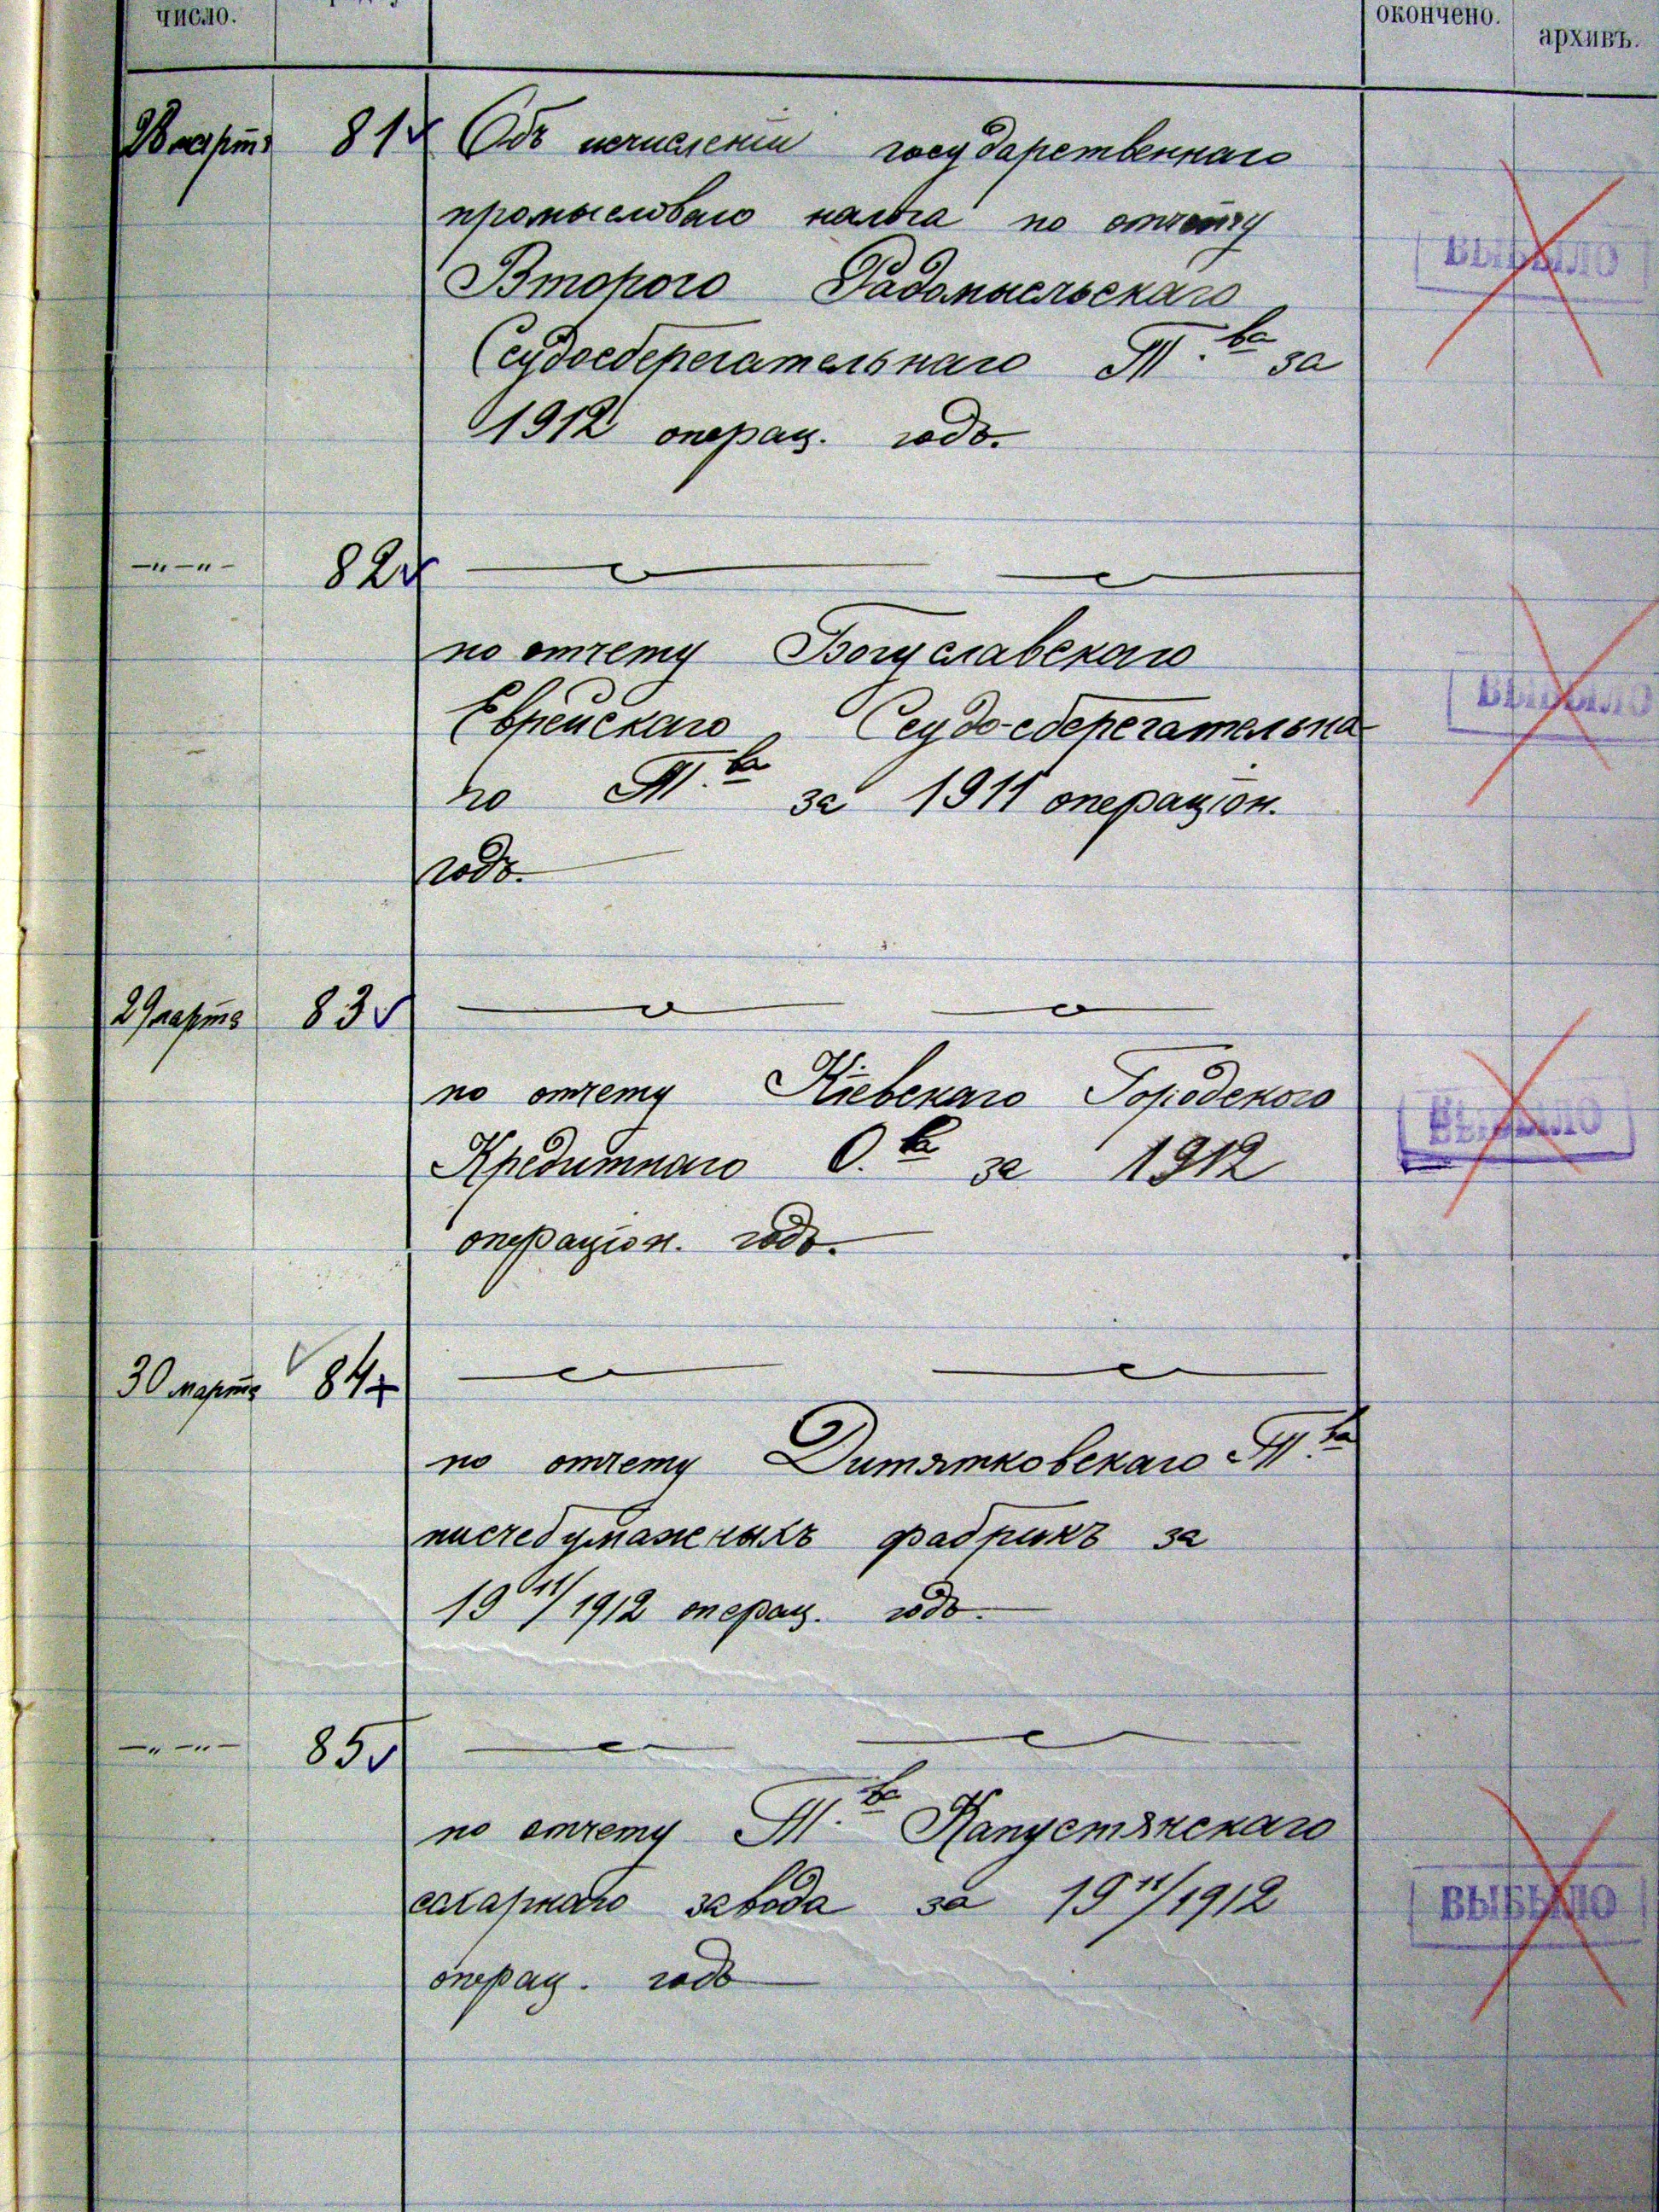 число.
окончено.
архивъ.
28 марта 81 Объ исчисленіи государственнаго
промысловаго налога по отчету
Второго Радомысльскаго
Ссудосберегательнаго Т.ва за
1912 операц. годъ.
ВЫБЫЛО
—"—"— 82
по отчету Богуславскаго
Еврейскаго Ссудо-сберегательна
го Т.ва за 1911 операціон.
годъ.
ВЫБЫЛО
29 марта 83
по отчету Кіевскаго Городского
Кредитнаго О.ва за 1912
операціон. годъ.
ВЫБЫЛО
30 марта 84
по отчету Дитятковскаго Т.ва
писчебумажныхъ фабрикъ за
1911/1912 операц. годъ.
—"—"— 85
по отчету Т.ва Капустянскаго
сахарнаго завода за 1911/1912
операц. годъ
ВЫБЫЛО